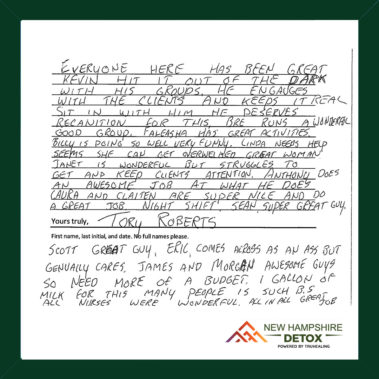 EVERYONE HERE HAS BEEN GREAT
KEVIN HIT IT OUT OF THE DARK
WITH HIS GROUPS. HE ENGAUGES
WITH THE CLIENTS AND KEEPS IT REAL
SIT IN WITH HIM HE DESERVES
RECANITION FOR THIS. BRE RUNS A WONDERFUL
GOOD GROUP. FALEASHA HAS GREAT ACTIVITIES
BILLY IS DOING SO WELL VERY FUNNY. LINDA NEEDS HELP
SEEMS SHE CAN GET OVERWELMED GREAT WOMAN
JANET IS WONDERFUL BUT STRUGGLES TO
GET AND KEEP CLIENTS ATTENTION. ANTHONY DOES
AN AWESOME JOB AT WHAT HE DOES.
LAURA AND CLAITEN ARE SUPER NICE AND DO
A GREAT JOB. NIGHT SHIFT SEAN SUPER GREAT GUY.
Yours truly, TORY ROBERTS
First name, last initial, and date. No full names please.
SCOTT GREAT GUY, ERIC COMES ACROSS AS AN ASS BUT
GENUAILY CARES. JAMES AND MORGAN AWESOME GUYS
SO NEED MORE OF A BUDGET. 1 GALLON OF
MILK FOR THIS MANY PEOPLE IS SUCH B.S.
ALL NURSES WERE WONDERFUL. ALL IN ALL GREAT JOB
NEW HAMPSHIRE
DETOX
POWERED BY TRUHEALING